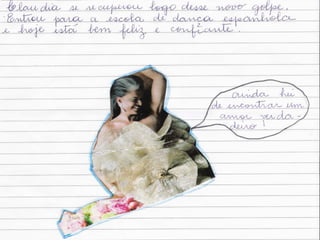 Claudia se recuperou logo desse novo golpe.
Entrou para a escola de dança espanhola
e hoje está bem feliz e confiante.
ainda hei
de encontrar um
amor verda-
deiro!